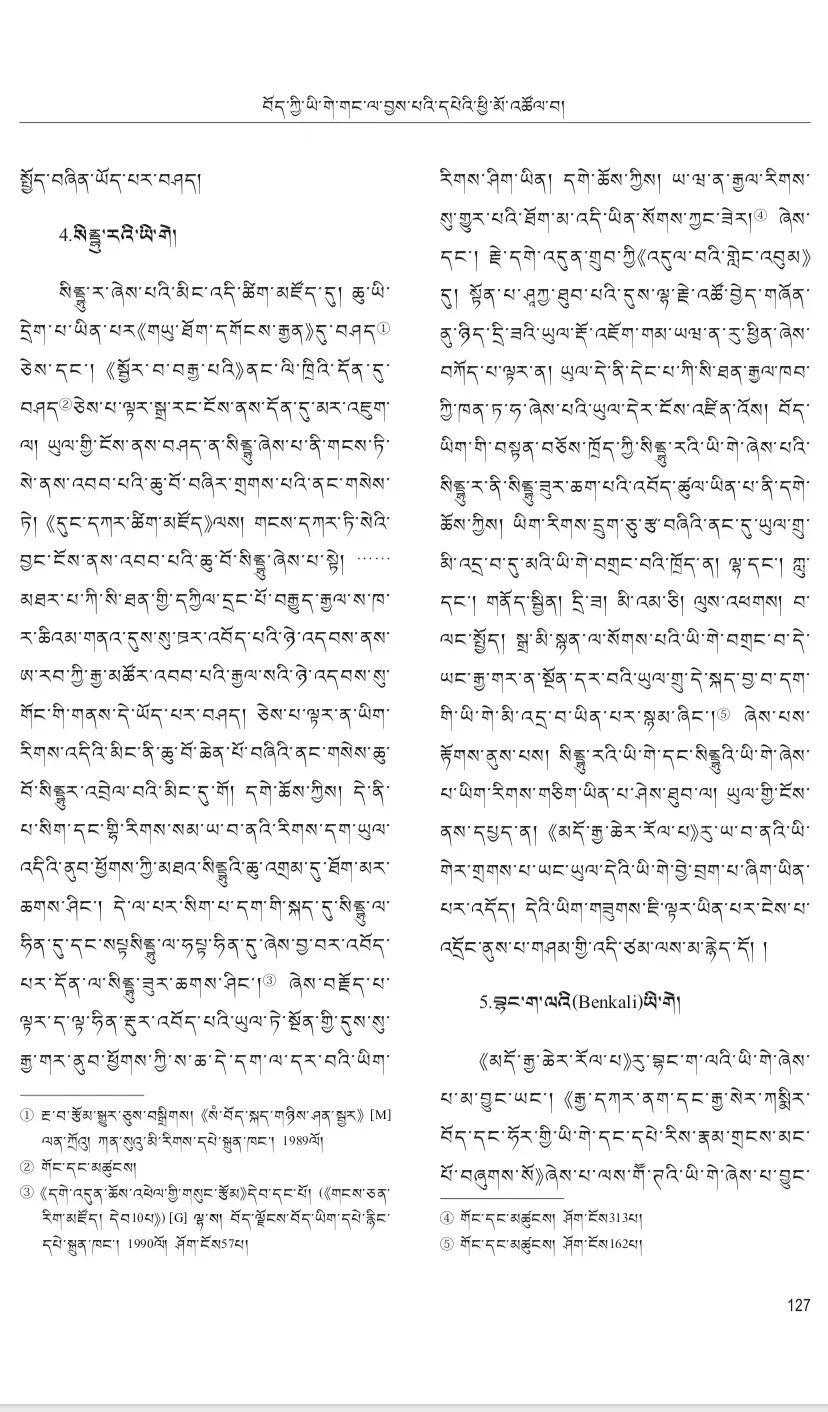 བོད་ཀྱི་ཡི་གེ་གང་ལ་བྱས་པའི་དཔེའི་ཕྱི་མོ་འཚོལ་བ།
སྤྱོད་བཞིན་ཡོད་པར་བཤད།
4.སིནྡྷུ་རའི་ཡི་གེ།
སིནྡྷུ་ར་ཞེས་པའི་མིང་འདི་ཚིག་མཛོད་དུ། ཆུ་ཡི་
དྲེག་པ་ཡིན་པར《གཡུ་ཐོག་དགོངས་རྒྱན》དུ་བཤད①
ཅེས་དང་། 《སྦྱོར་བ་བརྒྱ་པའི》ནང་ལི་ཁྲིའི་དོན་དུ་
བཤད②ཅེས་པ་ལྟར་སྒྲ་རང་ངོས་ནས་དོན་དུ་མར་འཇུག་
ལ། ཡུལ་གྱི་ངོས་ནས་བཤད་ན་སིནྡྷུ་ཞེས་པ་ནི་གངས་ཏི་
སེ་ནས་འབབ་པའི་ཆུ་བོ་བཞིར་གྲགས་པའི་ནང་གསེས་
ཏེ། 《དུང་དཀར་ཚིག་མཛོད》ལས། གངས་དཀར་ཏི་སེའི་
བྱང་ངོས་ནས་འབབ་པའི་ཆུ་བོ་སིནྡྷུ་ཞེས་པ་སྟེ། ······
མཐར་པ་ཀི་སི་ཐན་གྱི་དཀྱིལ་དྲང་པོ་བརྒྱུད་རྒྱལ་ས་ཁ་
ར་ཆིའམ་གནའ་དུས་སུ་ཁར་འབོད་པའི་ཉེ་འདབས་ནས་
ཨ་རབ་ཀྱི་རྒྱ་མཚོར་འབབ་པའི་རྒྱལ་སའི་ཉེ་འདབས་སུ་
གོང་གི་གནས་དེ་ཡོད་པར་བཤད། ཅེས་པ་ལྟར་ན་ཡིག་
རིགས་འདིའི་མིང་ནི་ཆུ་བོ་ཆེན་པོ་བཞིའི་ནང་གསེས་ཆུ་
བོ་སིནྡྷུར་འབྲེལ་བའི་མིང་དུ་གོ། དགེ་ཆོས་ཀྱིས། དེ་ནི་
པ་སིག་དང་གྷི་རིགས་སམ་ཡ་བ་ནའི་རིགས་དག་ཡུལ་
འདིའི་ནུབ་ཕྱོགས་ཀྱི་མཐའ་སིནྡྷུའི་ཆུ་འགྲམ་དུ་ཐོག་མར་
ཆགས་ཤིང་། དེ་ལ་པར་སིག་པ་དག་གི་སྐད་དུ་སིནྡྷུ་ལ་
ཧིན་དུ་དང་སཔྟ་སིནྡྷུ་ལ་ཧཔྟ་ཧིན་དུ་ཞེས་བྱ་བར་འབོད་
པར་དོན་ལ་སིནྡྷུ་ཟུར་ཆགས་ཤིང་།③ ཞེས་བརྗོད་པ་
ལྟར་ད་ལྟ་ཧིན་རྡུར་འབོད་པའི་ཡུལ་ཏེ་སྔོན་གྱི་དུས་སུ་
རྒྱ་གར་ནུབ་ཕྱོགས་ཀྱི་ས་ཆ་དེ་དག་ལ་དར་བའི་ཡིག་
① རྔ་བ་རྩོམ་སྒྱུར་ཅུས་བསྒྲིགས། 《སཾ་བོད་སྐད་གཉིས་ཤན་སྦྱར》[M]
ལན་ཀྲོའུ། ཀན་སུའུ་མི་རིགས་དཔེ་སྐྲུན་ཁང་། 1989ལོ།
② གོང་དང་མཚུངས།
③ 《དགེ་འདུན་ཆོས་འཕེལ་གྱི་གསུང་རྩོམ》དེབ་དང་པོ། (《གངས་ཅན་
རིག་མཛོད། དེབ10པ》) [G] ལྷ་ས། བོད་ལྗོངས་བོད་ཡིག་དཔེ་རྙིང་
དཔེ་སྐྲུན་ཁང་། 1990ལོ། ཤོག་ངོས57པ།
རིགས་ཤིག་ཡིན། དགེ་ཆོས་ཀྱིས། ཡ་ཝ་ན་རྒྱལ་རིགས་
སུ་གྱུར་པའི་ཐོག་མ་འདི་ཡིན་སོགས་ཀྱང་ཟེར།④ ཞེས་
དང་། རྗེ་དགེ་འདུན་གྲུབ་ཀྱི《འདུལ་བའི་གླེང་འབུམ》
དུ། སྟོན་པ་ཤཱཀྱ་ཐུབ་པའི་དུས་ལྷ་རྗེ་འཚོ་བྱེད་གཞོན་
ནུ་ཉིད་དྲི་ཟའི་ཡུལ་རྡོ་འཇོག་གམ་ཡཝ་ན་རུ་ཕྱིན་ཞེས་
བཀོད་པ་ལྟར་ན། ཡུལ་དེ་ནི་དེང་པ་ཀི་སི་ཐན་རྒྱལ་ཁབ་
ཀྱི་ཁན་ཏ་ཧ་ཞེས་པའི་ཡུལ་དེར་ངོས་འཛིན་འོས། བོད་
ཡིག་གི་བསྟན་བཅོས་ཁྲོད་ཀྱི་སིནྡྷུ་རའི་ཡི་གེ་ཞེས་པའི་
སིནྡྷུ་ར་ནི་སིནྡྷུ་ཟུར་ཆག་པའི་འབོད་ཚུལ་ཡིན་པ་ནི་དགེ་
ཆོས་ཀྱིས། ཡིག་རིགས་དྲུག་ཅུ་རྩ་བཞིའི་ནང་དུ་ཡུལ་གྲུ་
མི་འདྲ་བ་དུ་མའི་ཡི་གེ་བགྲང་བའི་ཁྲོད་ན། ལྷ་དང་། ཀླུ་
དང་། གནོད་སྦྱིན། དྲི་ཟ། མི་འམ་ཅི། ལུས་འཕགས། བ་
ལང་སྤྱོད། སྒྲ་མི་སྙན་ལ་སོགས་པའི་ཡི་གེ་བགྲང་བ་དེ་
ཡང་རྒྱ་གར་ན་སྔོན་དར་བའི་ཡུལ་གྲུ་དེ་སྐད་བྱ་བ་དག་
གི་ཡི་གེ་མི་འདྲ་བ་ཡིན་པར་སྙམ་ཞིང་།⑤ ཞེས་པས་
རྟོགས་ནུས་པས། སིནྡྷུ་རའི་ཡི་གེ་དང་སིནྡྷུའི་ཡི་གེ་ཞེས་
པ་ཡིག་རིགས་གཅིག་ཡིན་པ་ཤེས་ཐུབ་ལ། ཡུལ་གྱི་ངོས་
ནས་དཔྱད་ན། 《མདོ་རྒྱ་ཆེར་རོལ་པ》རུ་ཡ་བ་ནའི་ཡི་
གེར་གྲགས་པ་ཡང་ཡུལ་དེའི་ཡི་གེ་བྱེ་བྲག་པ་ཞིག་ཡིན་
པར་འདོད། དེའི་ཡིག་གཟུགས་ཇི་ལྟར་ཡིན་པར་ངེས་པ་
འདྲོང་ནུས་པ་གཤམ་གྱི་འདི་ཙམ་ལས་མ་རྙེད་དོ། །
5.བྷང་ག་ལའི(Benkali)ཡི་གེ།
《མདོ་རྒྱ་ཆེར་རོལ་པ》རུ་བྷང་ག་ལའི་ཡི་གེ་ཞེས་
པ་མ་བྱུང་ཡང་། 《རྒྱ་དཀར་ནག་དང་རྒྱ་སེར་ཀསྨིར་
བོད་དང་ཧོར་གྱི་ཡི་གེ་དང་དཔེ་རིས་རྣམ་གྲངས་མང་
པོ་བཞུགས་སོ》ཞེས་པ་ལས་གཽ་ཌའི་ཡི་གེ་ཞེས་པ་བྱུང་
④ གོང་དང་མཚུངས། ཤོག་ངོས313པ།
⑤ གོང་དང་མཚུངས། ཤོག་ངོས162པ།
127